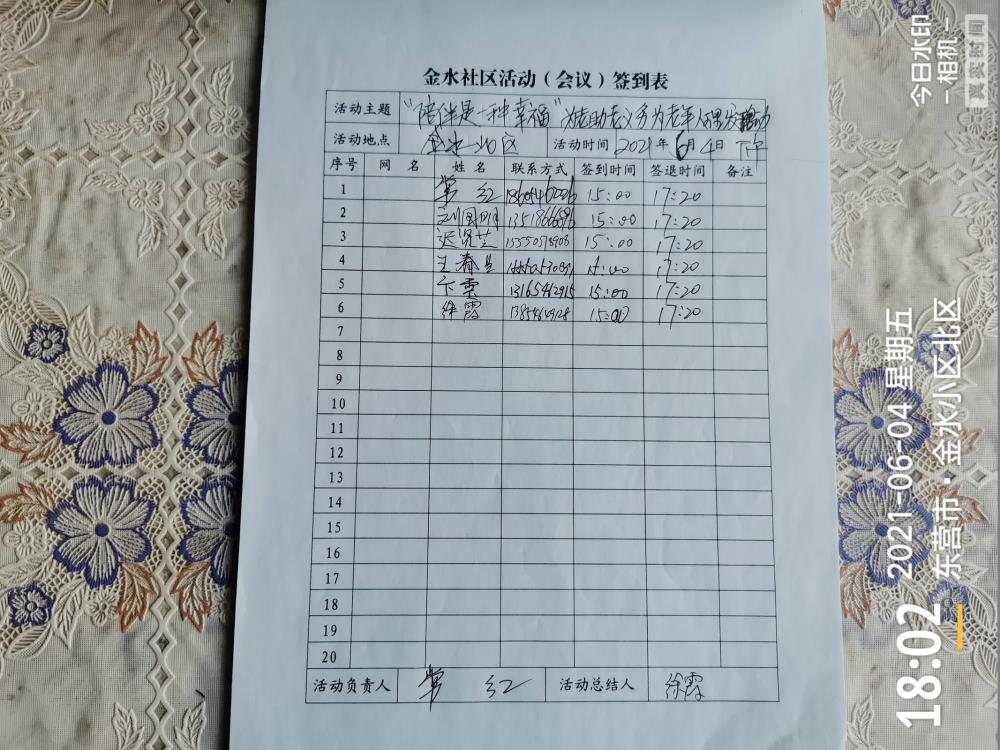 金水社区活动（会议）签到表
活动主题 "陪伴是一种幸福" 为老助老义务为老年人理发活动
活动地点 金水北区 活动时间 2021年6月4日 下午
序号 网 名 姓 名 联系方式 签到时间 签退时间 备注
1 红 15:00 17:20
2 15:00 17:20
3 迟贤芝 15550578908 15:00 17:20
4 王春 15:00 17:20
5 13165462915 15:00 17:20
6 徐霞 15:00 17:20
7
8
9
10
11
12
13
14
15
16
17
18
19
20
活动负责人 红 活动总结人 徐霞
今日水印
-相机-
真实时间
18:02 2021-06-04 星期五
东营市·金水小区北区